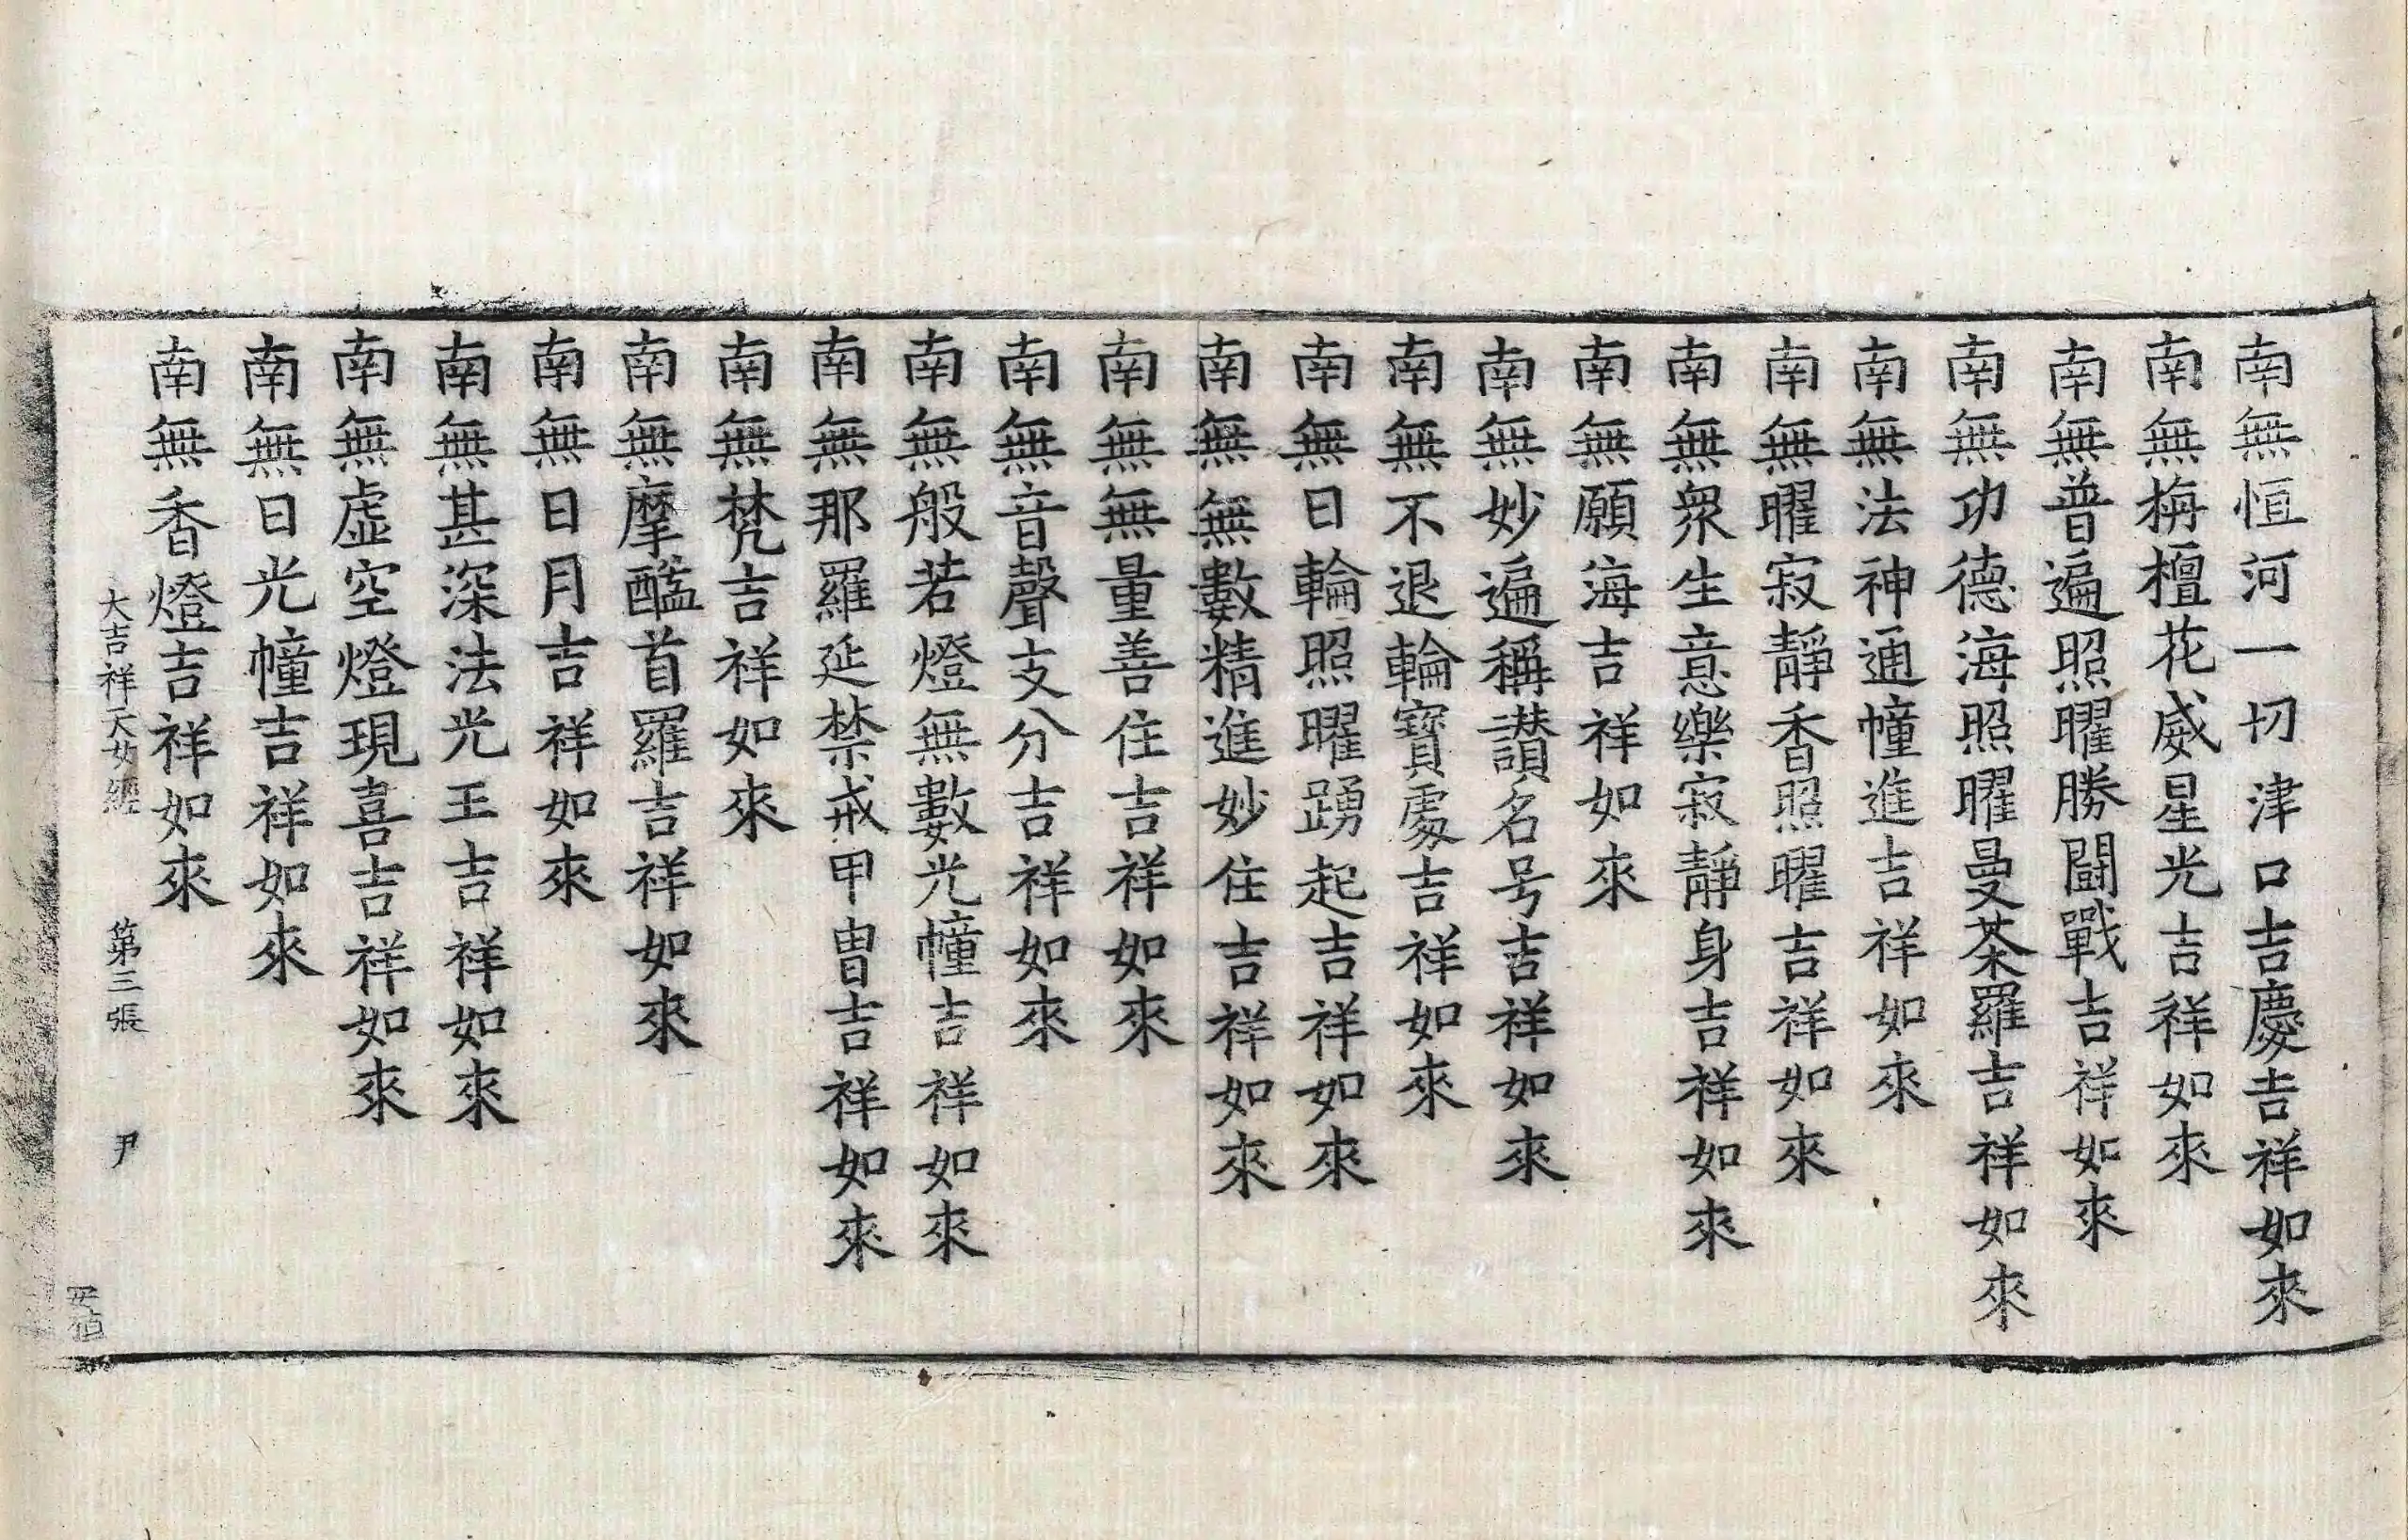 南無恒河一切津口吉慶吉祥如來
南無栴檀花威星光吉祥如來
南無普遍照曜勝鬪戰吉祥如來
南無功德海照曜曼荼羅吉祥如來
南無法神通幢進吉祥如來
南無曜寂靜香照曜吉祥如來
南無衆生意樂寂靜身吉祥如來
南無願海吉祥如來
南無妙遍稱讃名号吉祥如來
南無不退輪寶處吉祥如來
南無日輪照曜踴起吉祥如來
南無無數精進妙住吉祥如來
南無無量善住吉祥如來
南無音聲支分吉祥如來
南無般若燈無數光幢吉祥如來
南無那羅延禁戒甲冑吉祥如來
南無梵吉祥如來
南無摩醯首羅吉祥如來
南無日月吉祥如來
南無甚深法光王吉祥如來
南無虛空燈現喜吉祥如來
南無日光幢吉祥如來
南無香燈吉祥如來
大吉祥天女經 第三張 尹